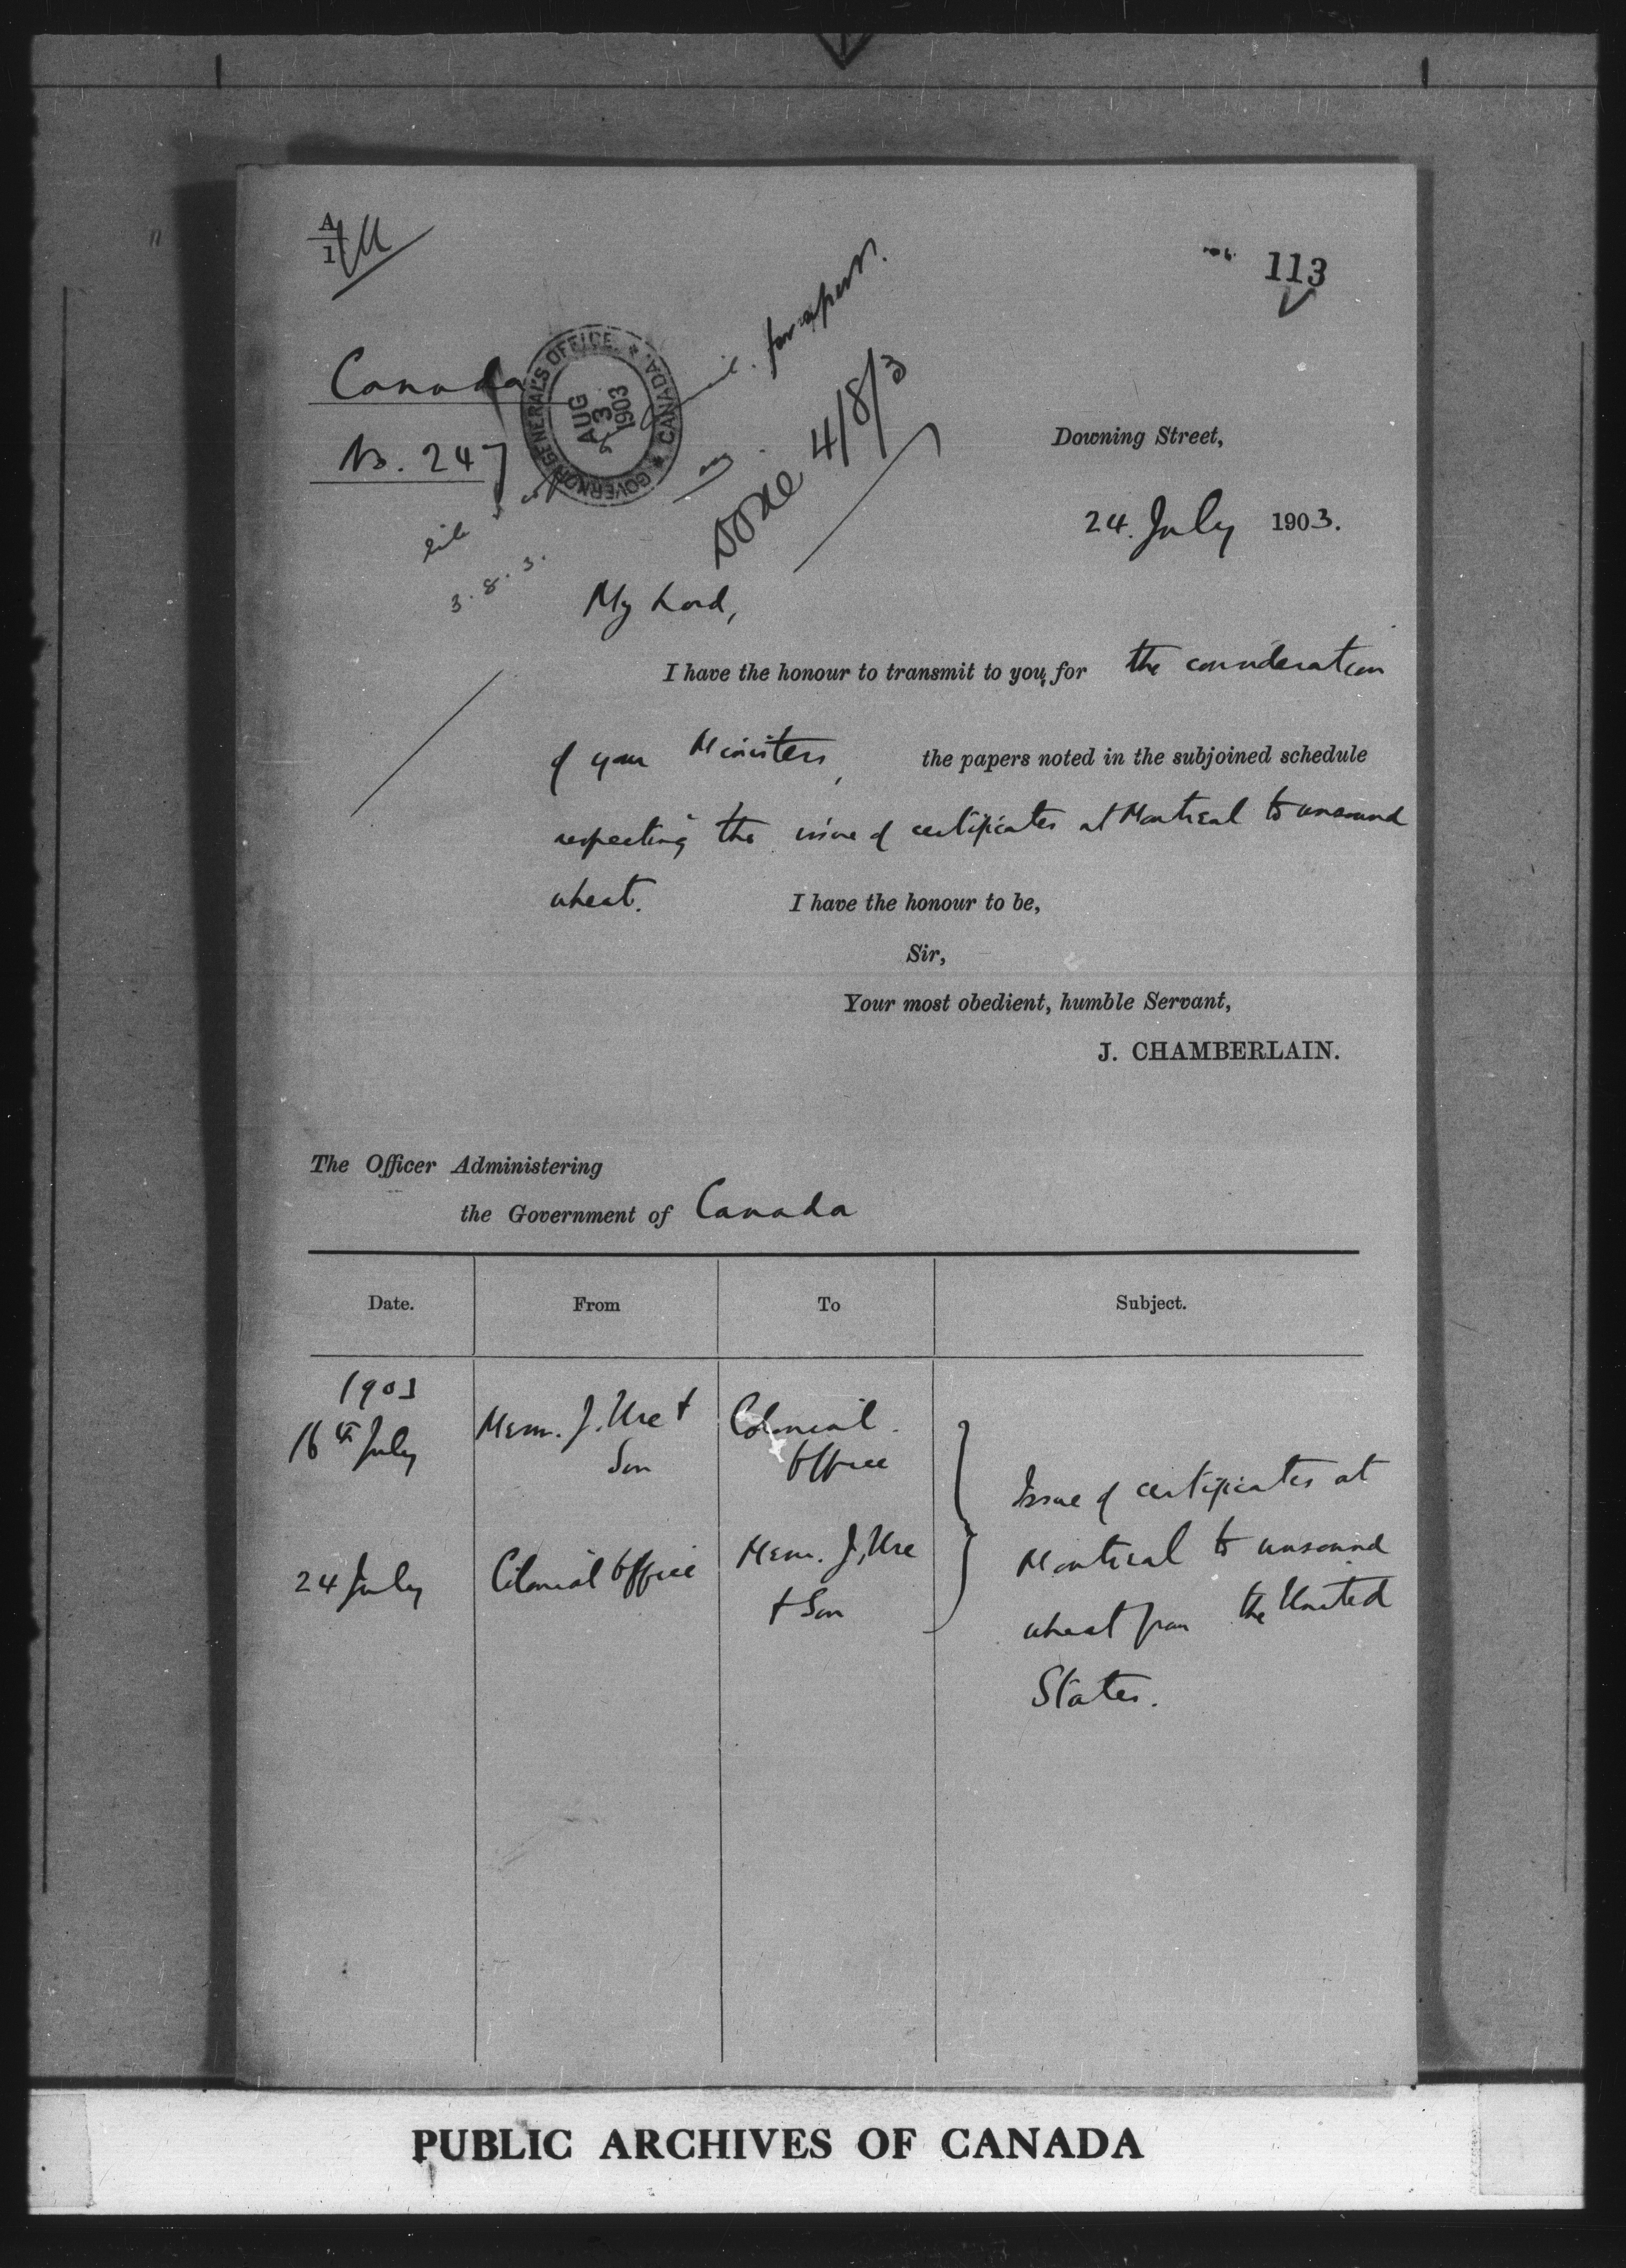 A/1
113
Canada
No. 247
GOVERNOR GENERAL'S OFFICE. * CANADA. *
AUG
3
1903
for apers.
Done 4/8/3
3.8.3.
Downing Street,
24. July 1903.
My Lord,
I have the honour to transmit to you, for the consideration
of your Ministers, the papers noted in the subjoined schedule
respecting the issue of certificates at Montreal to unsound
wheat. I have the honour to be,
Sir,
Your most obedient, humble Servant,
J. CHAMBERLAIN.
The Officer Administering
the Government of Canada
Date. From To Subject.
1903
16th July Messrs. J. Ure + Son Colonial Office
24 July Colonial Office Messrs. J. Ure + Son
Issue of certificates at
Montreal to unsound
wheat from the United
States.
PUBLIC ARCHIVES OF CANADA